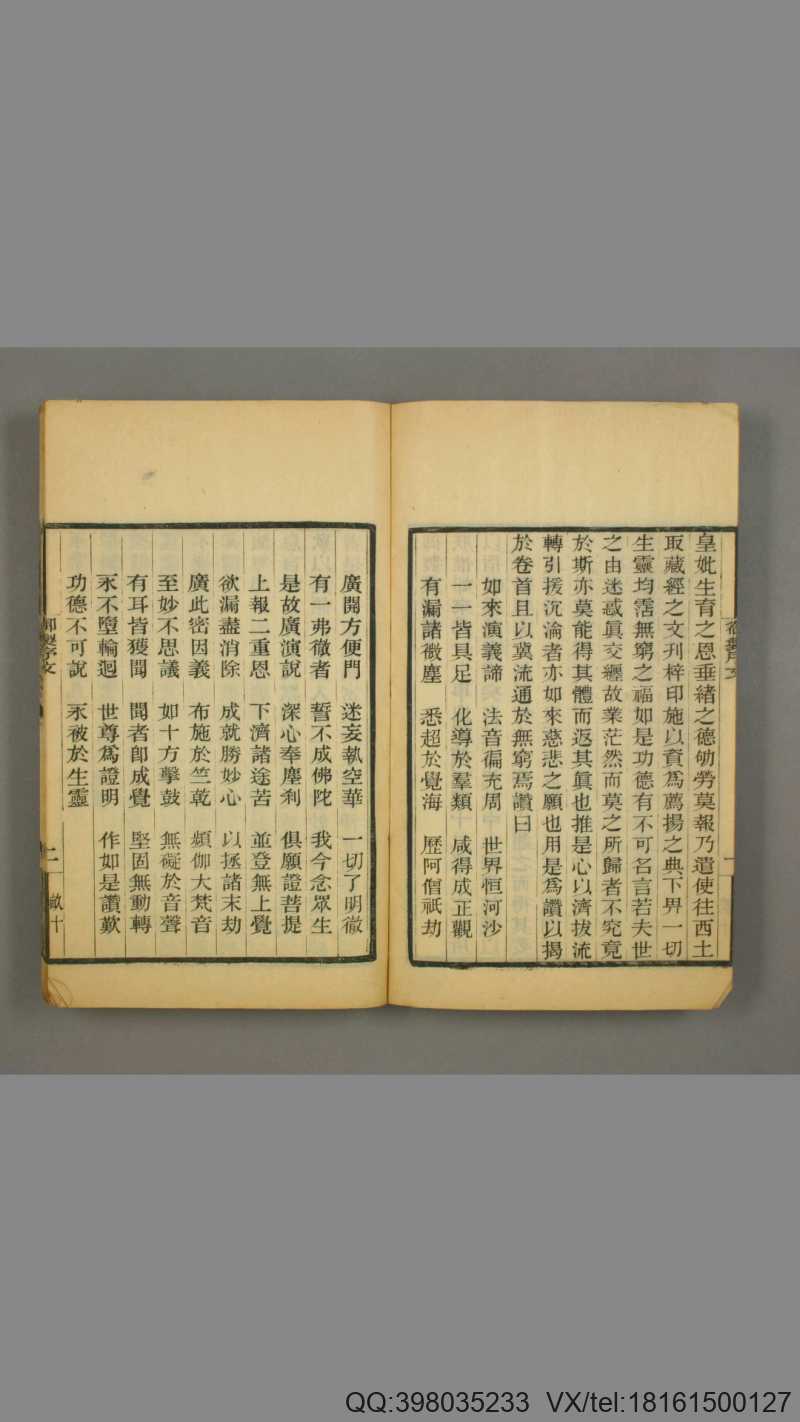 皇妣生育之恩垂緒之德劬勞莫報乃遣使往西土
取藏經之文刋梓印施以資爲薦揚之典下畀一切
生靈均霑無窮之福如是功德有不可名言若夫世
之由迷惑眞交纏故業茫然而莫之所歸者不究竟
於斯亦莫能得其體而返其眞也推是心以濟拔流
轉引援沉淪者亦如來慈悲之願也用是爲讚以揭
於卷首且以冀流通於無窮焉讚曰
如來演義諦 法音徧充周 世界恒河沙
一一皆具足 化導於羣類 咸得成正觀
有漏諸微塵 悉超於覺海 歷阿僧祇劫
廣開方便門 迷妄執空華 一切了明徹
有一弗徹者 誓不成佛陀 我今念眾生
是故廣演說 深心奉塵刹 俱願證菩提
上報二重恩 下濟諸途苦 並登無上覺
欲漏盡消除 成就勝妙心 以拯諸末劫
廣此密因義 布施於竺乾 頻伽大梵音
至妙不思議 如十方擊鼓 無礙於音聲
有耳皆獲聞 聞者卽成覺 堅固無動轉
永不墮輪迴 世尊爲證明 作如是讚歎
功德不可說 永被於生靈
二
QQ:398035233 VX/tel:18161500127